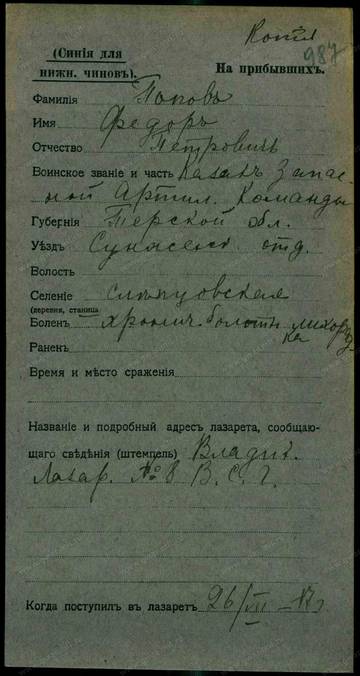 Копія
987
(Синія для
нижн. чиновъ).
На прибывшихъ.
Фамилія Поповъ
Имя Федоръ
Отчество Петровичъ
Воинское званіе и часть Казакъ Запас-
ной Артил. Команды
Губернія Терской обл.
Уѣздъ Сунженск отд.
Волость
Селеніе Слѣпцовская
(деревня, станица)
Боленъ хронич. болотн. лихорад
ка
Раненъ
Время и мѣсто сраженія
Названіе и подробный адресъ лазарета, сообщаю-
щаго свѣдѣнія (штемпель) Владик.
Лазар. № 8 В. С. Г.
Когда поступилъ въ лазаретъ 26/VII–17 г